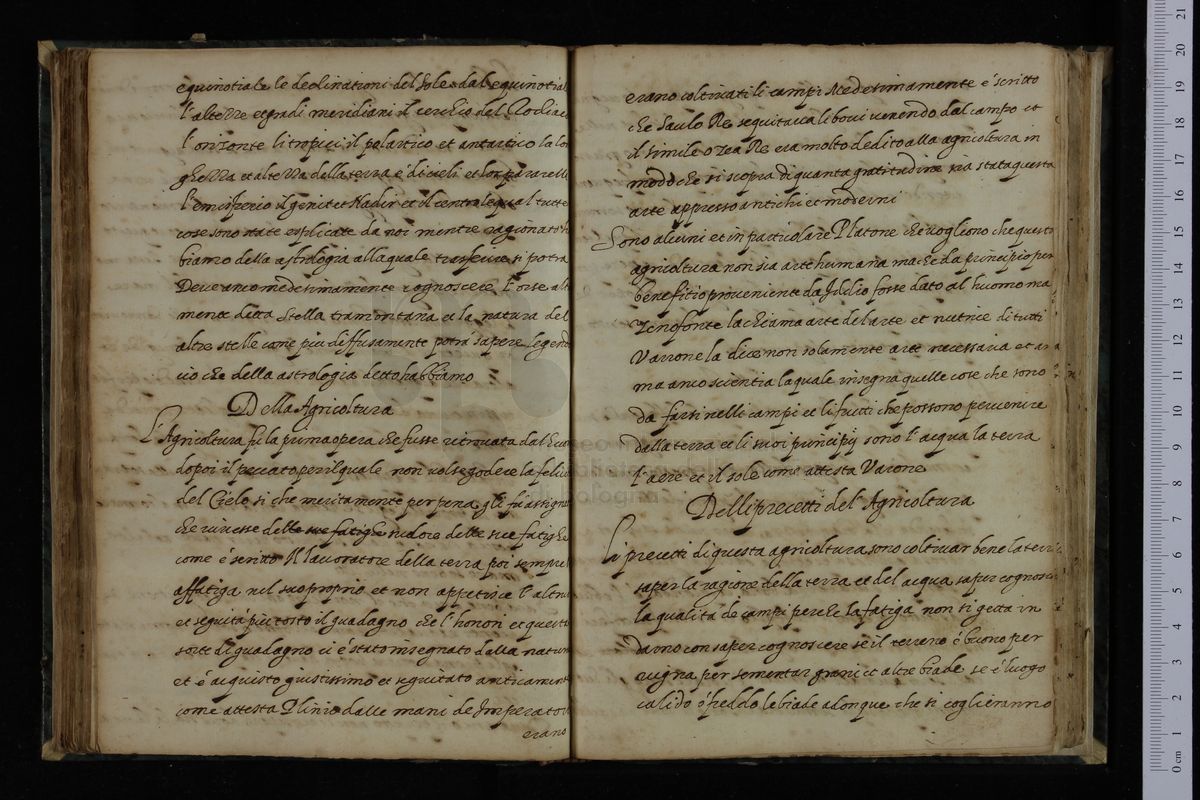 equinotiale le declinationi del sole dal equinotial
l'altezze et gradi meridiani il cerchio del Zodiac
l'orizonte li tropici il polartico et antartico la lon
ghezza et altezza della terra e di cieli et
l'emisperio il genit et Nadir et il centro le qual tutte
cose sono state esplicate da noi mentre ragionato h
biamo della astrologia alla quale trasferire si potra
Deve anco medesimamente cognoscere l'orse alt
mente detta stella tramontana et la natura del
altre stelle come più diffusamente potrà sapere legend
cio che della astrologia detto habbiamo
Della Agricoltura
L'Agricoltura fu la prima opera che fusse ritrovata dal huo
dopoi il peccato per il quale non volse godere la felici
del Cielo si che meritamente per pena gli fu assign
che vivesse delle sue fatighe sudore delle sue fatighe
come è scritto Il lavoratore della terra poi sempre
affatiga nel suo proprio et non appetisce l'altru
et seguita più tosto il guadagno che l'honori et questa
sorte di guadagno ci è stato insegnato dalla natur
et è acquisto giustissimo et seguitato anticament
come attesta Plinio dalle mani de Imperatori
erano
erano coltivati li campi Medesimamente è scritto
che Saulo Re seguitava li bovi venendo dal campo et
il simile Ozea Re era molto dedito alla agricoltura in
modo che si scopra di quanta gratitudine sia stata questa
arte appresso antichi et moderni
Sono alcuni et in particolare Platone che vogliono che questa
agricoltura non sia arte humana ma che da principio per
benefitio proveniente da Iddio fosse dato al huomo ma
Zenofonte la chiama arte del arte et nutrice di tutti
Varrone la dice non solamente arte necessaria et
ma anco scientia la quale insegna quelle cose che sono
da farsi nelli campi et li frutti che possono pervenire
dalla terra et li suoi principij sono l'acqua la terra
l'aere et il sole come attesta Varone
Delli precetti del Agricoltura
Li precetti di questa agricoltura sono coltivar bene la terra
saper la ragione della terra et del acqua saper cognosce
la qualità de campi perche la fatiga non si getta in
darno con saper cognoscere se il terreno è buono per
vigna per sementar grani et altre biade se è luogo
calido o freddo le biade adonque che si coglieranno